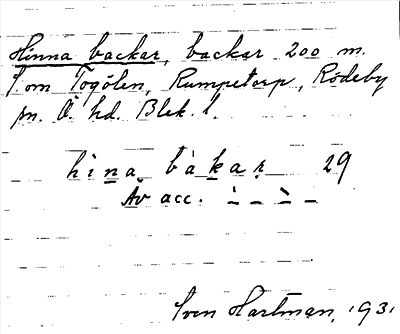 Hinna backar, backar 200 m.
S. om Togölen, Rumpetorp, Rödeby
sn. Ö. hd. Blek. l.
hìna bàkar 29
Av acc.
Sven Hartman, 1931